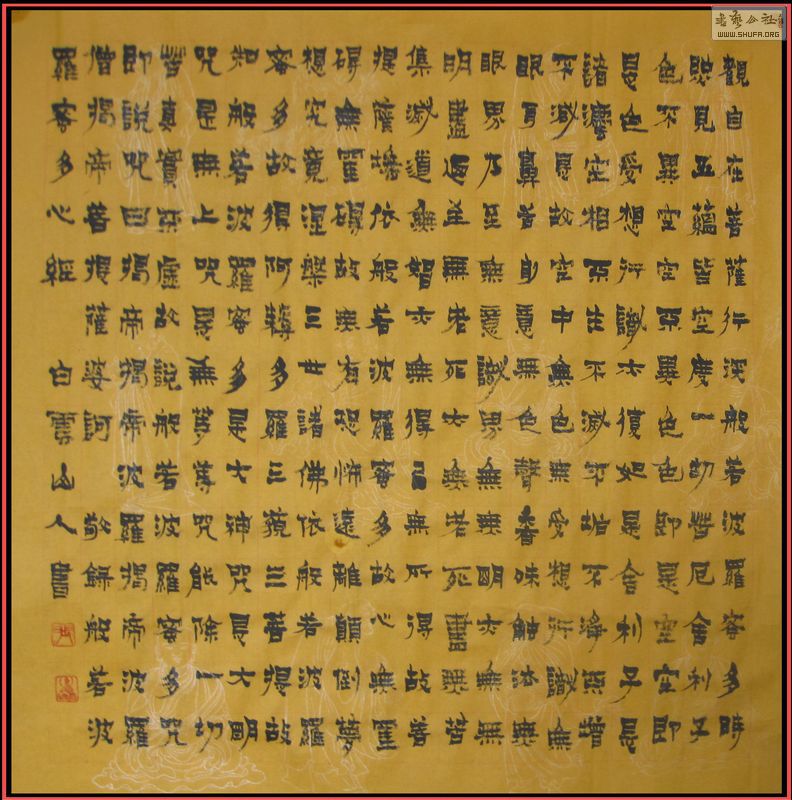 觀自在菩薩行深般若波羅蜜多時
照見五蘊皆空度一切苦厄舍利子
色不異空空不異色色即是空空即
是色受想行識亦復如是舍利子是
諸灋空相不生不滅不垢不淨不增
不減是故空中無色無受想行識無
眼耳鼻舌身意無色聲香味觸法無
眼界乃至無意識界無無明亦無無
明盡迺至無老死亦無老死盡無苦
集滅道無智亦無得以無所得故菩
提薩埵依般若波羅蜜多故心無罣
礙無罣礙故無有恐怖遠離顛倒夢
想究竟涅槃三世諸佛依般若波羅
蜜多故得阿耨多羅三藐三菩提故
知般若波羅蜜多是大神咒是大明
咒是無上咒是無等等咒能除一切
苦真實不虛故說般若波羅蜜多咒
即說咒曰揭帝揭帝波羅揭帝波羅
僧揭帝菩提薩婆訶 敬錄般若波
羅蜜多心經 白雲山人書
書藝公社
WWW.SHUFA.ORG